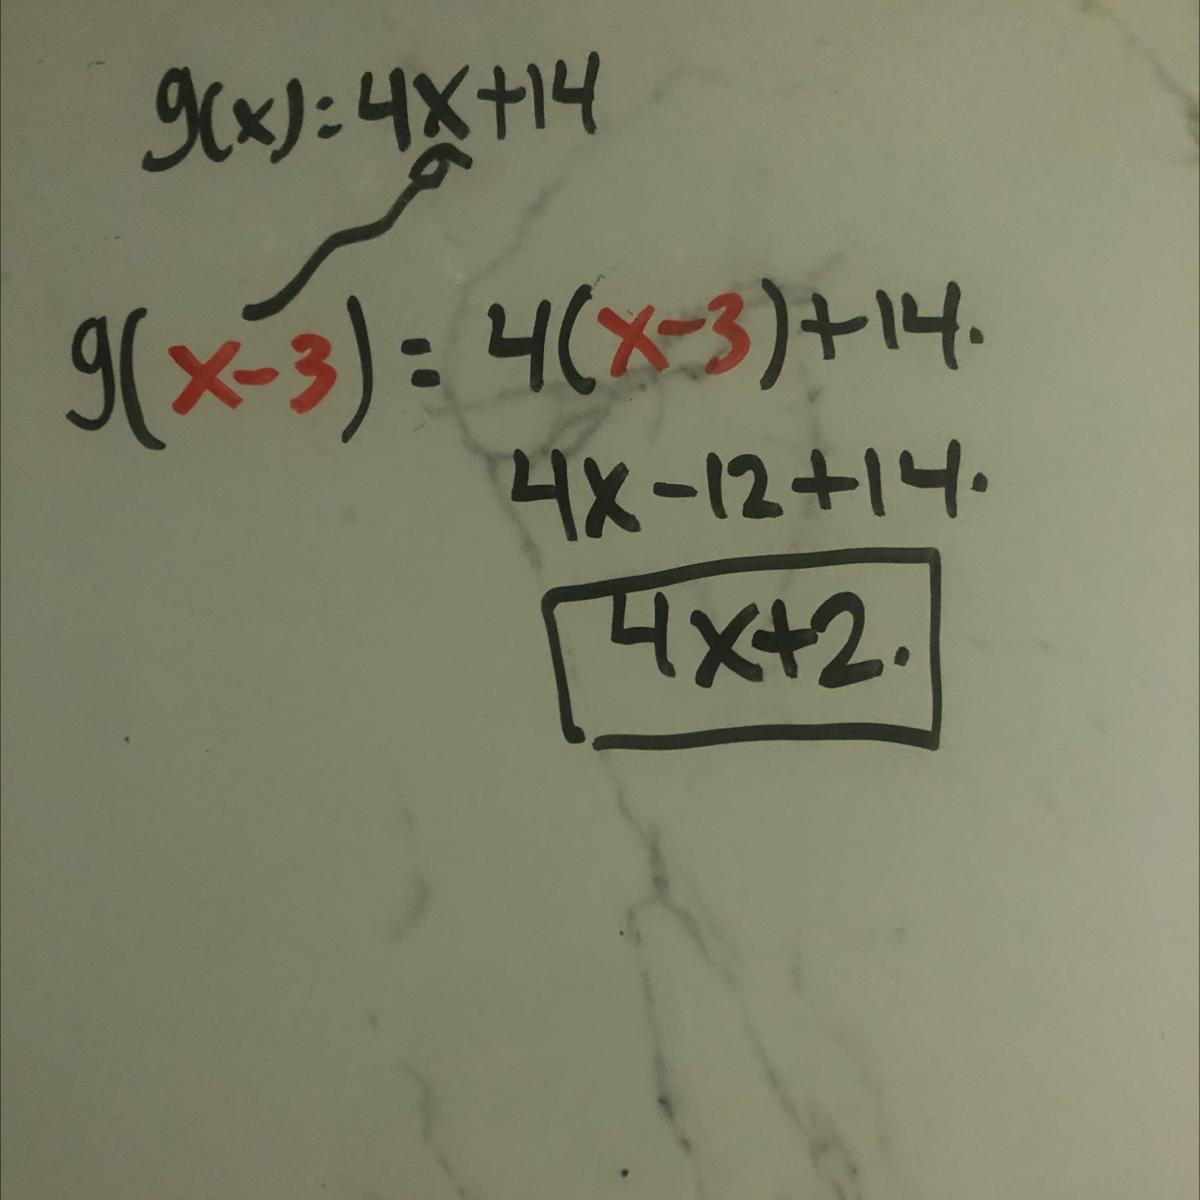 g(x)=4x+14
g(x-3)=4(x-3)+14.
4x-12+14.
4x+2.